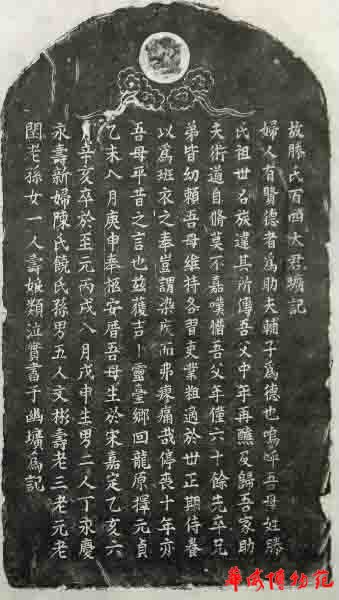 故滕氏百四太君壙記
婦人有賢德者為助夫輔子為德也嗚呼吾母姓滕
氏祖世名族違其所傳吾父中年再醮及歸吾家助
夫術道自脩莫不嘉嘆惜吾父年僅六十餘先卒兄
弟皆幼賴吾母維持各習吏業粗適於世正期侍養
以為班衣之奉豈謂染疾而弗瘳痛哉停喪十年亦
吾母平昔之言也茲獲吉卜靈臺鄉回龍原擇元貞
乙未八月庚申奉柩安厝吾母生於宋嘉定乙亥六
月辛亥卒於至元丙戌八月戊申生男二人丁永慶
永壽新婦陳氏饒氏孫男五人文彬壽老三老元老
閏老孫女一人壽娘類泣實書于幽壙為記
博物苑